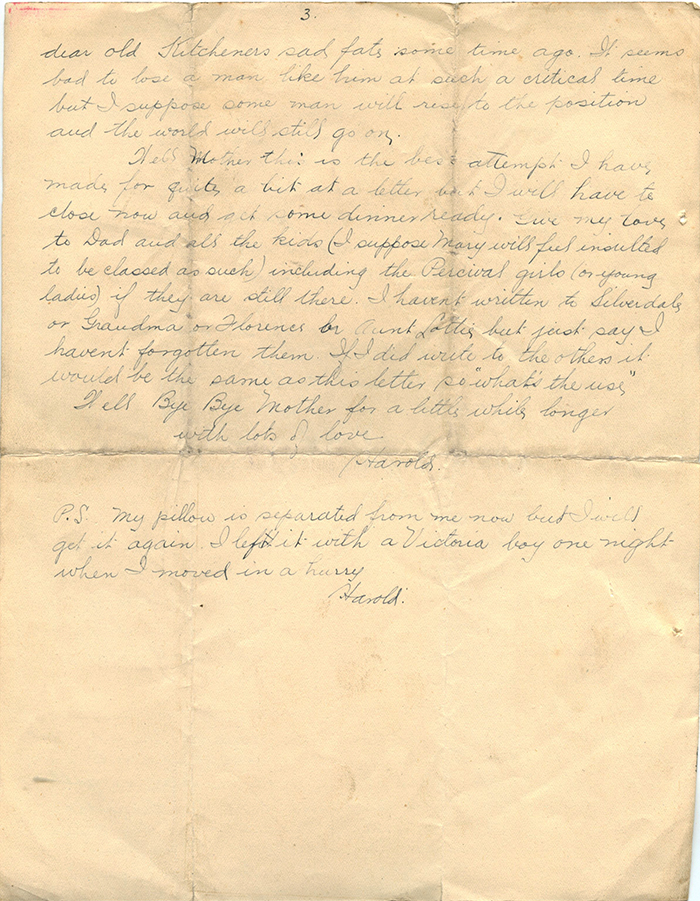 3.
dear old Kitcheners sad fate some time ago. It seems
bad to lose a man like him at such a critical time
but I suppose some man will rise to the position
and the world will still go on.
Well Mother this is the best attempt I have
made for quite a bit at a letter but I will have to
close now and get some dinner ready. Give my love
to Dad and all the kids (I suppose Mary will feel insulted
to be classed as such) including the Percival girls (or young
ladies) if they are still there. I havent written to Silverdale
or Grandma or Florence or Aunt Lottie but just say I
havent forgotten them. If I did write to the others it
would be the same as this letter so "what's the use"
Well Bye Bye Mother for a little while longer
with lots of love
Harold.
P.S. My pillow is separated from me now but I will
get it again. I left it with a Victoria boy one night
when I moved in a hurry
Harold.